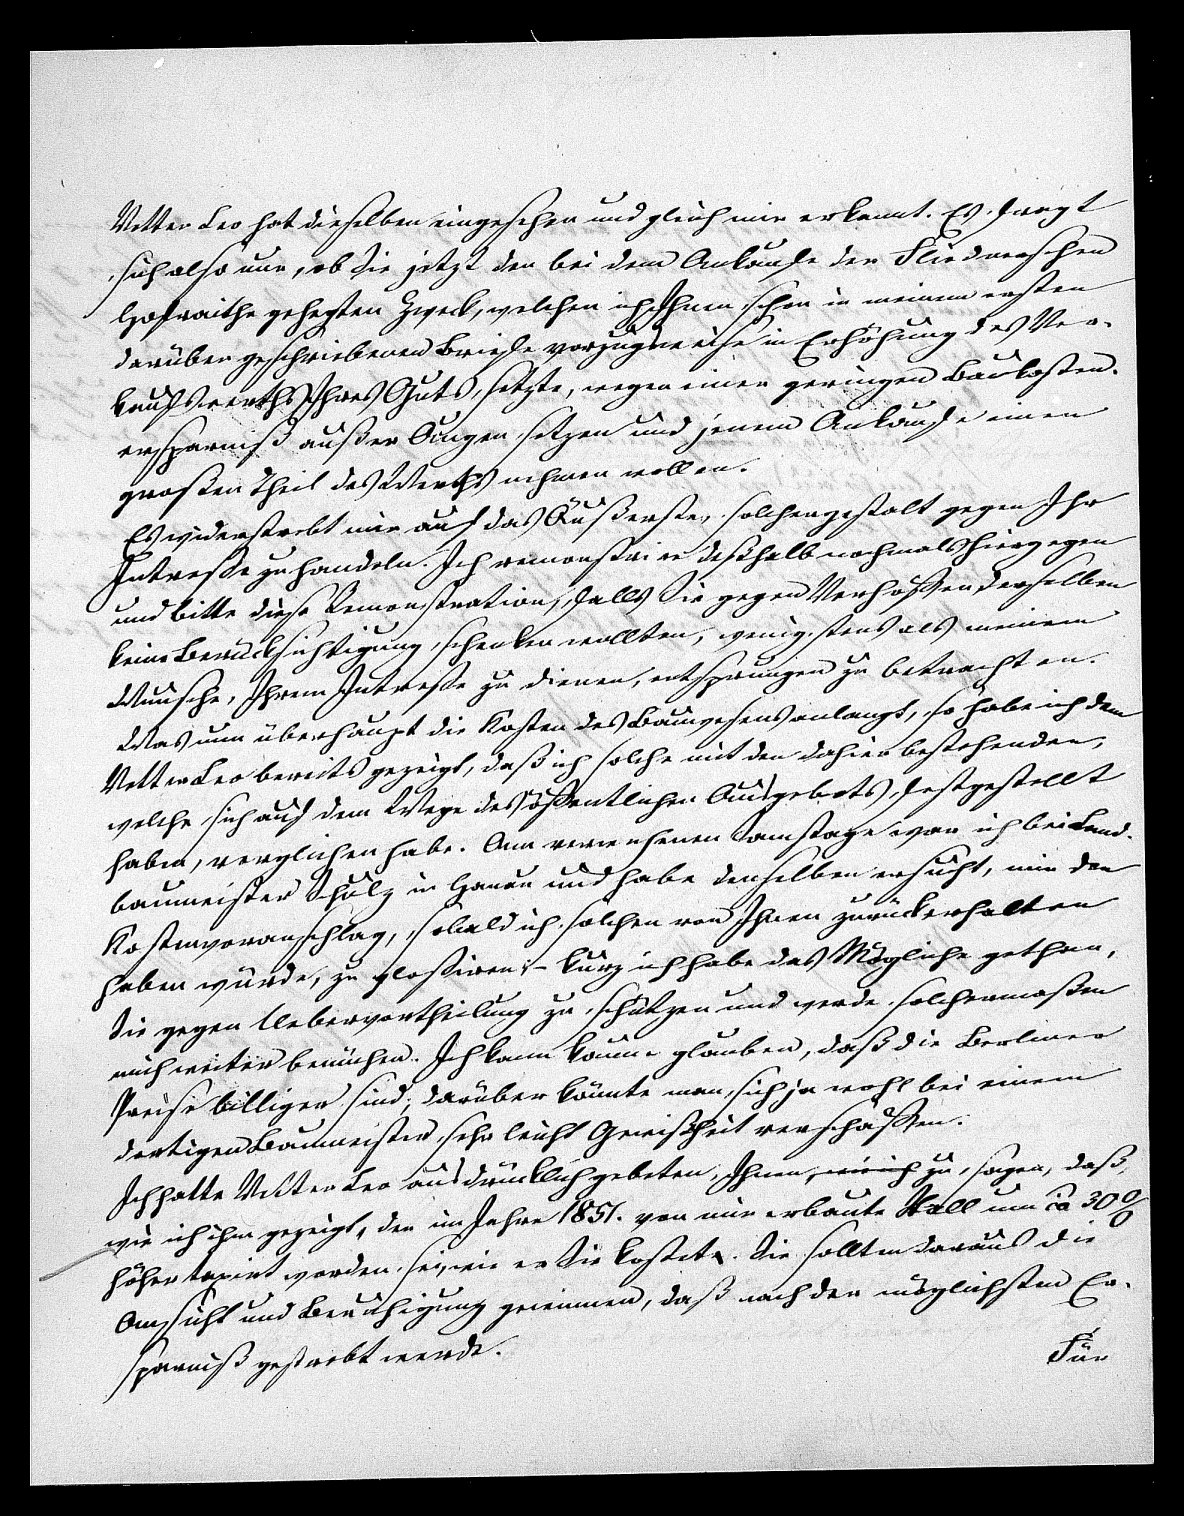 Vetter Leo hat dieselben eingesehen und gleich mir erkannt. Es fragt
sich also nur, ob Sie jetzt den bei dem Ankaufe der Fliednerschen
Hofraithe gehegten Zweck, welchen ich Ihnen schon in meinem ersten
darüber geschriebenen Briefe vorzugsweise in Erhöhung des Ver-
kaufswerths Ihres Guts setzte, wegen einer geringen Baukosten-
ersparniß außer Augen setzen und jenem Ankaufe einen
großen Theil des Werths nehmen wollen.
Es widerstrebt mir auf das Äußerste, solchergestalt gegen Ihr
Intresse zu handeln. Ich remonstrire deßhalb nochmals hiergegen
und bitte diese Remonstration, falls Sie gegen Verhoffen derselben
keine Berücksichtigung schenken wollten, wenigstens als meinem
Wunsche, Ihrem Intresse zu dienen, entsprungen zu betrachten.
Was nun überhaupt die Kosten des Bauwesens anlangt, so habe ich dem
Vetter Leo bereits gezeigt, daß ich solche mit den dahier bestehenden,
welche sich auf dem Wege des öffentlichen Ausgebots festgestellt
haben, verglichen habe. Am verwichenen Samstage war ich bei Land-
baumeister Schulz in Hanau und habe denselben ersucht, mir den
Kostenvoranschlag, sobald ich solchen von Ihnen zurückerhalten
haben würde, zu glossiren; – kurz ich habe das Mögliche gethan,
Sie gegen Uebervortheilung zu schützen und werde solchermaßen
mich weiter bemühen. Ich kann kaum glauben, daß die Berliner
Preise billiger sind; darüber könnte man sich ja wohl bei einem
dortigen Baumeister sehr leicht Gewißheit verschaffen.
Ich hatte Vetter Leo ausdrücklich gebeten, Ihnen, zu sagen, daß,
wie ich ihm gezeigt, der im Jahre 1851. von mir erbaute Stall um ca 30 %
höher taxirt worden sei, wie er Sie kostete. Sie sollten daraus die
Ansicht und Beruhigung gewinnen, daß nach der möglichsten Er-
sparniß gestrebt werde.
Für